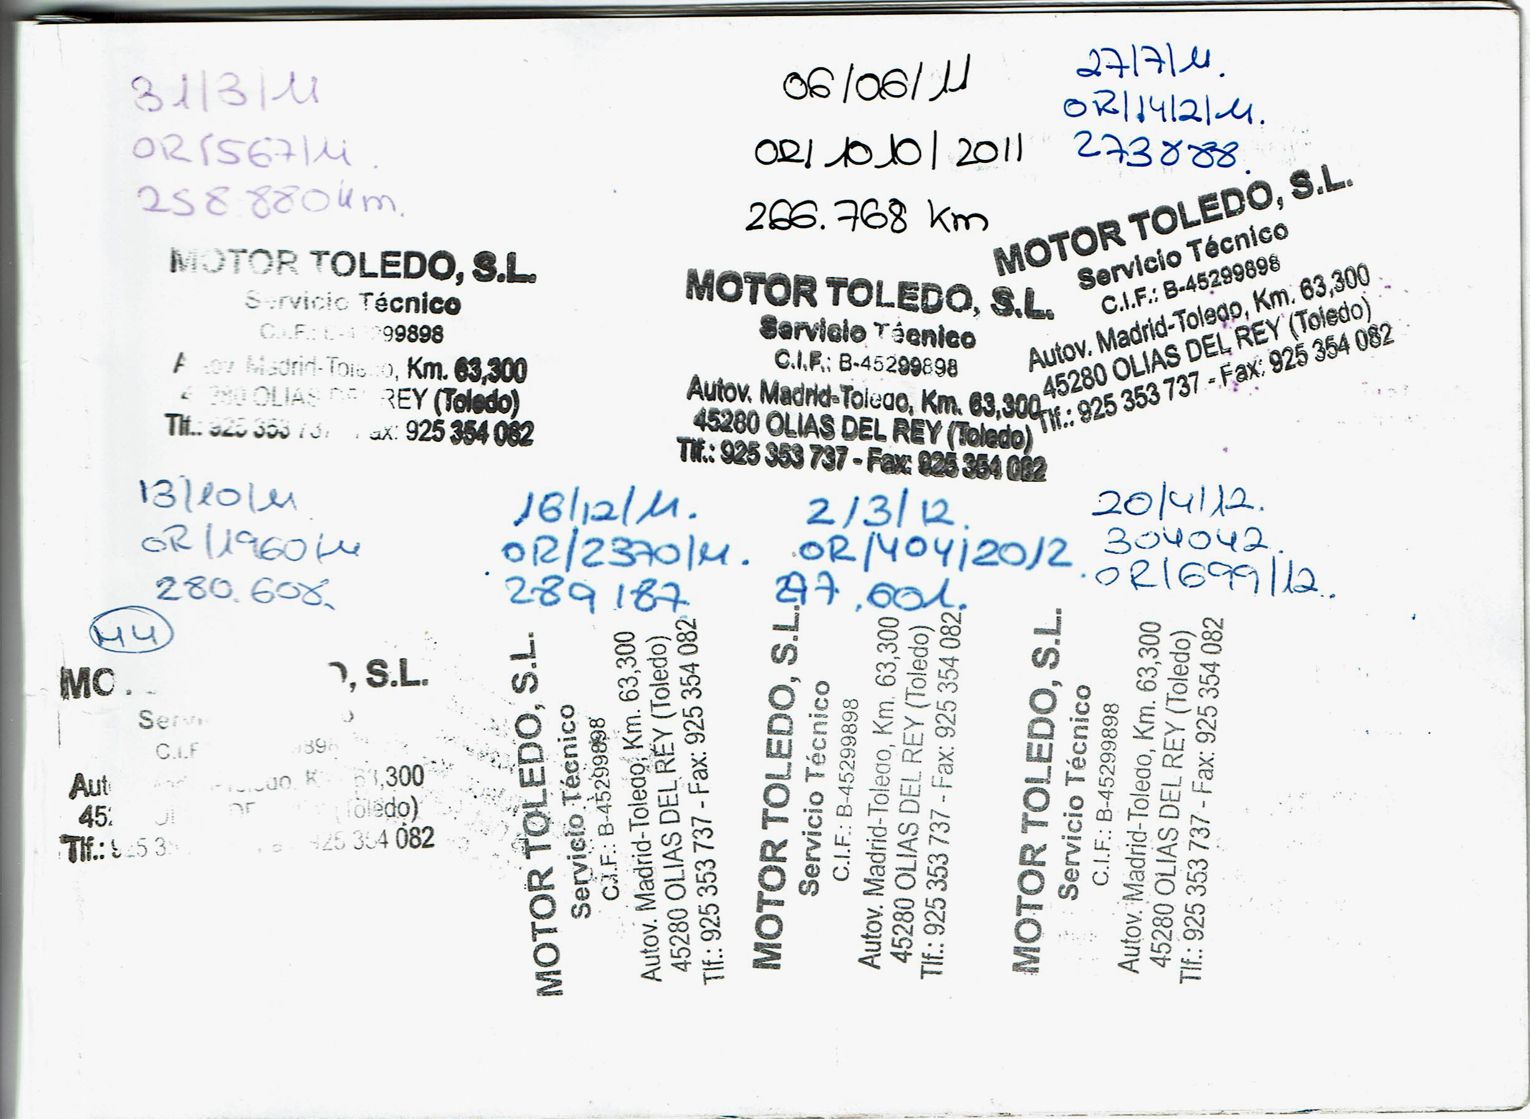 31/3/11
OR/567/11.
258.880 km.
MOTOR TOLEDO, S.L.
Servicio Técnico
C.I.F.: 99898
Autov. Madrid-Toledo, Km. 63,300
OLIAS DEL REY (Toledo)
Tlf.: 925 353 737 Fax: 925 354 082
06/06/11
OR/1010/2011
266.768 km
MOTOR TOLEDO, S.L.
Servicio Técnico
C.I.F.: B-45299898
Autov. Madrid-Toledo, Km. 63,300
45280 OLIAS DEL REY (Toledo)
Tlf.: 925 353 737 - Fax: 925 354 082
27/7/11.
OR/1412/11.
273888.
MOTOR TOLEDO, S.L.
Servicio Técnico
C.I.F.: B-45299898
Autov. Madrid-Toledo, Km. 63,300
45280 OLIAS DEL REY (Toledo)
Tlf.: 925 353 737 - Fax: 925 354 082
13/10/11
OR/1960/11
280.608.
, S.L.
63,300
(Toledo)
Tlf.: 082
16/12/11.
OR/2370/11.
289187
MOTOR TOLEDO, S.L.
Servicio Técnico
C.I.F.: B-45299898
Autov. Madrid-Toledo, Km. 63,300
45280 OLIAS DEL REY (Toledo)
Tlf.: 925 353 737 - Fax: 925 354 082
2/3/12.
OR/404/2012.
297.601.
MOTOR TOLEDO, S.L.
Servicio Técnico
C.I.F.: B-45299898
Autov. Madrid-Toledo, Km. 63,300
45280 OLIAS DEL REY (Toledo)
Tlf.: 925 353 737 - Fax: 925 354 082
20/4/12.
304042.
OR/699/12.
MOTOR TOLEDO, S.L.
Servicio Técnico
C.I.F.: B-45299898
Autov. Madrid-Toledo, Km. 63,300
45280 OLIAS DEL REY (Toledo)
Tlf.: 925 353 737 - Fax: 925 354 082